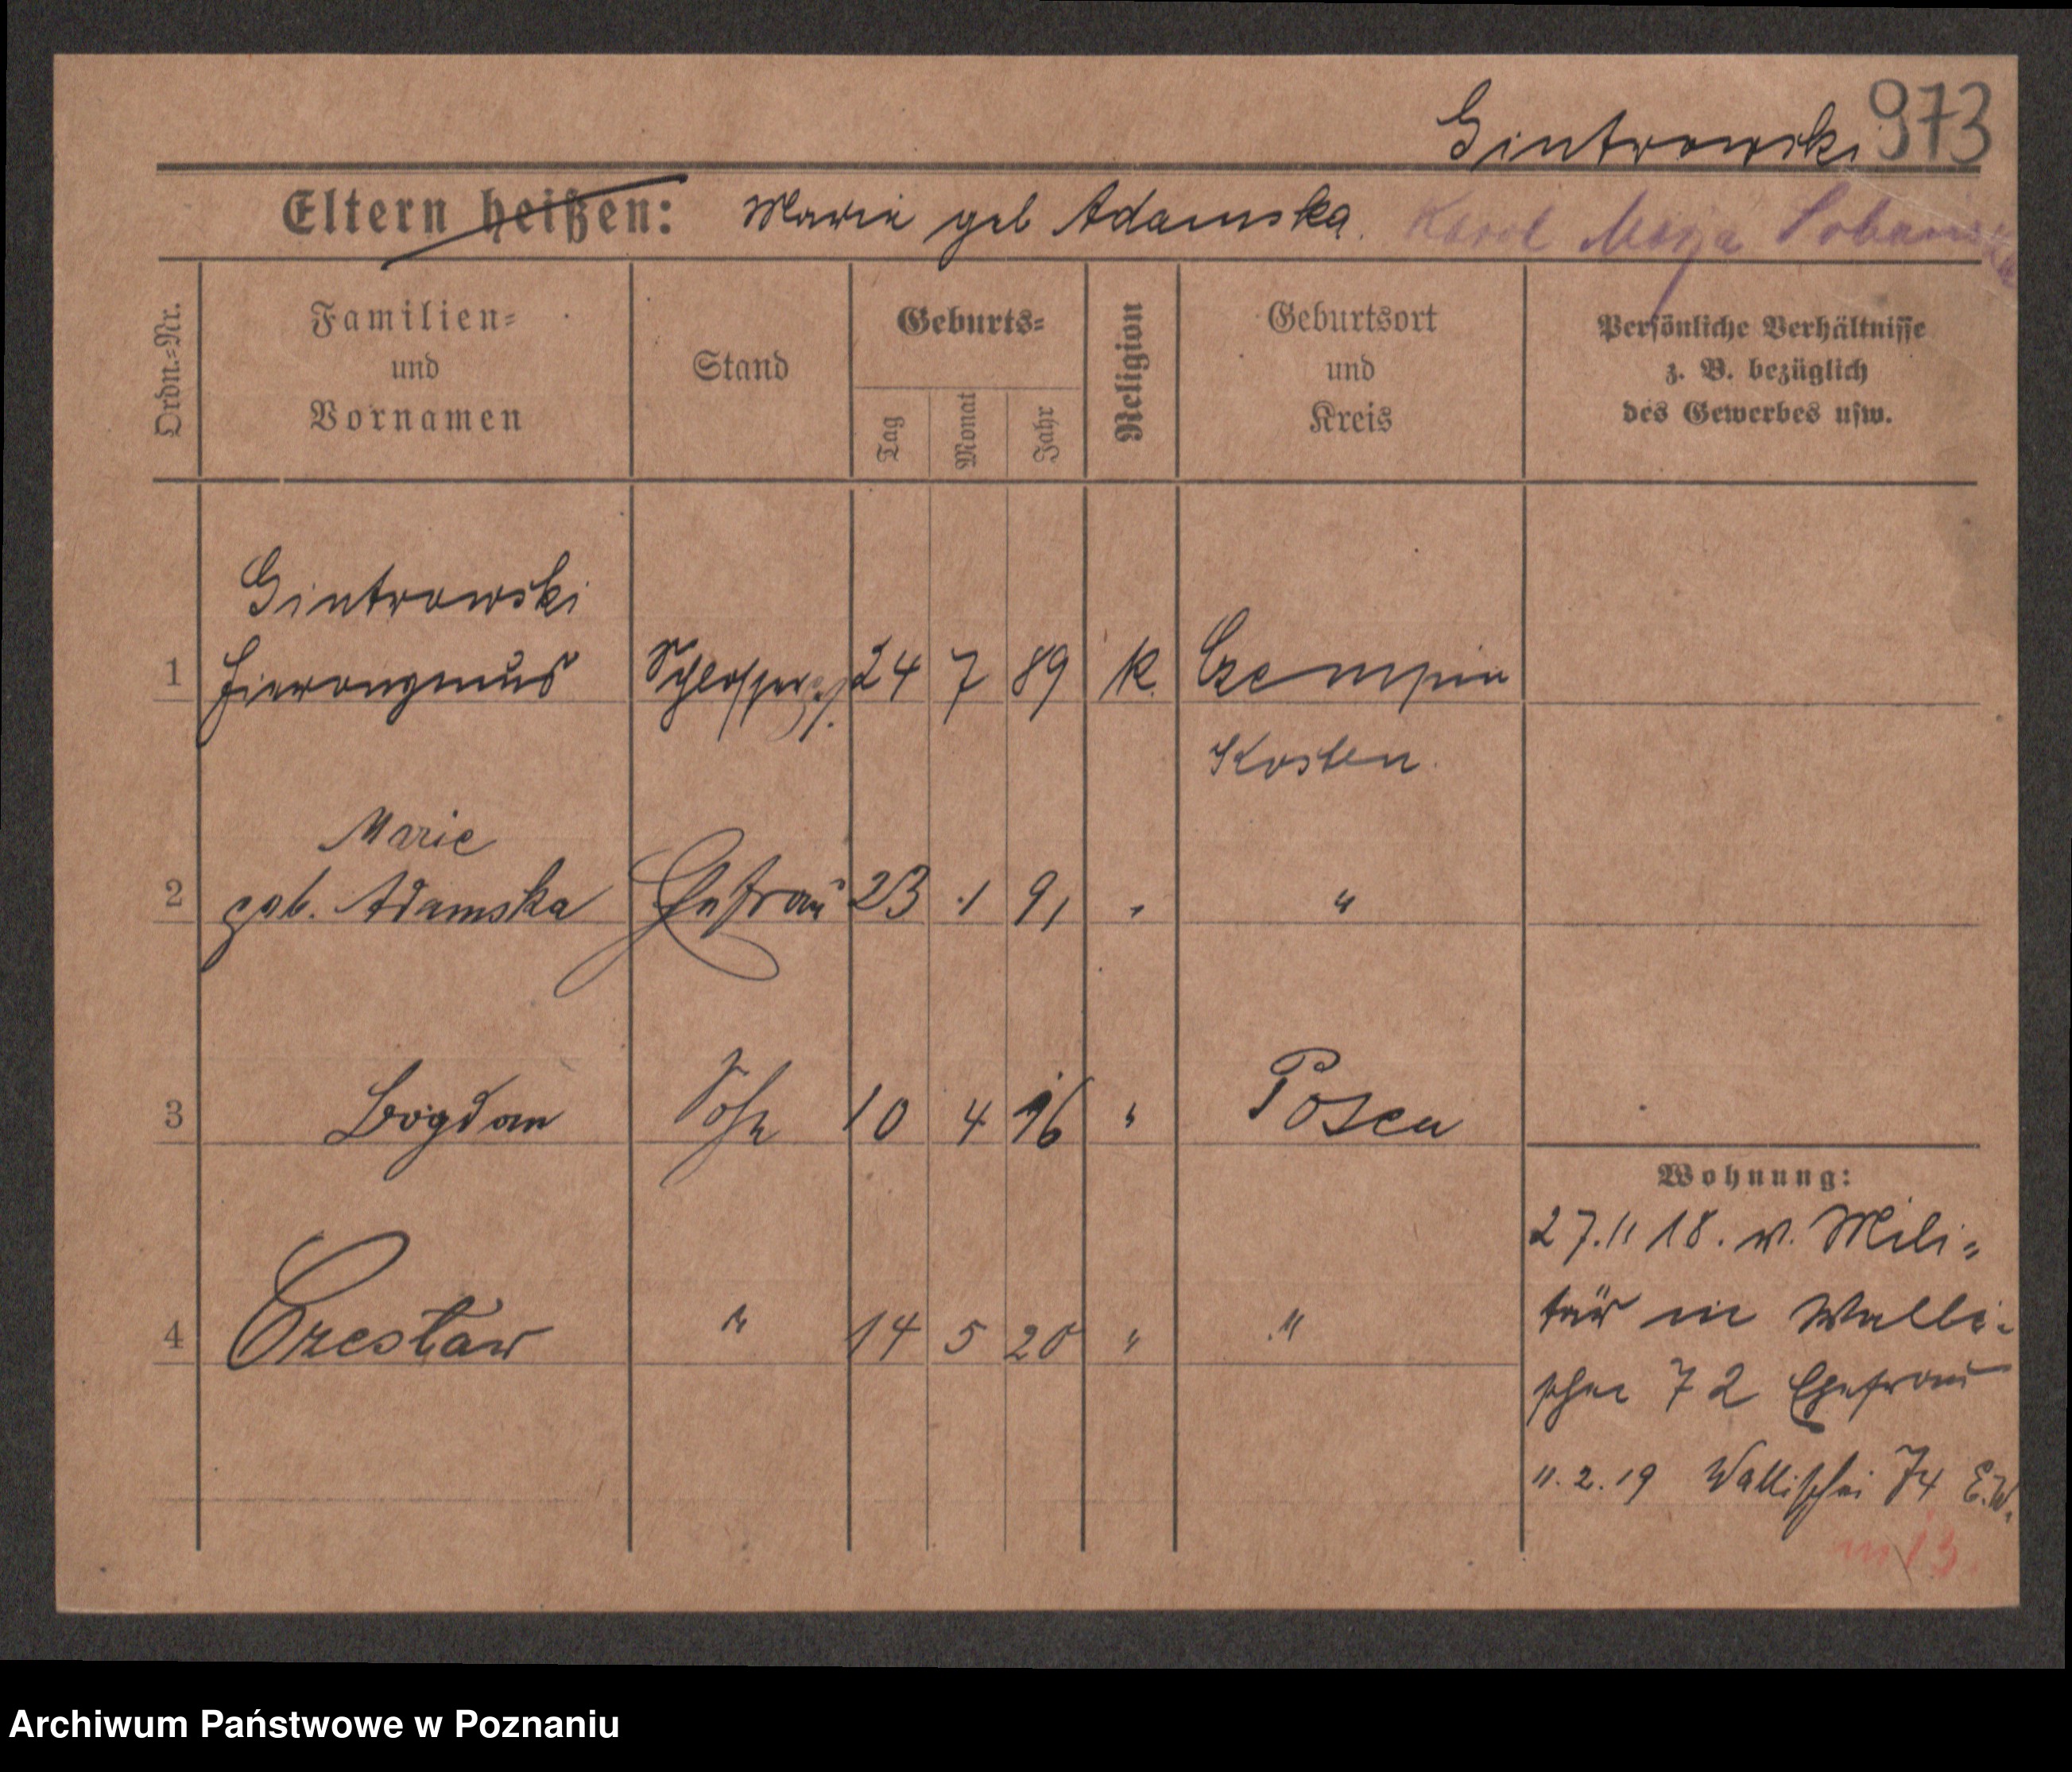 Gintrowski 973
Eltern heißen: Marie geb Adamska. Karol Marja
Ordn.=Nr.
Familien=
und
Vornamen
Stand
Geburts=
Tag Monat Jahr
Religion
Geburtsort
und
Kreis
Persönliche Verhältnisse
z. B. bezüglich
des Gewerbes usw.
Gintrowski
1 Hieronymus Schlosser 24 7 89 K. Czempin
Kosten.
Marie
2 geb. Adamska Ehefrau 23 1 91 " "
3 Bogdan Sohn 10 4 16 " Posen
4 Czesław " 14 5 20 " "
Wohnung:
27.11 18. v. Mili=
tär in Walli=
schei 72 Ehefrau
11.2.19 Wallischei 74 E.W.
Archiwum Państwowe w Poznaniu